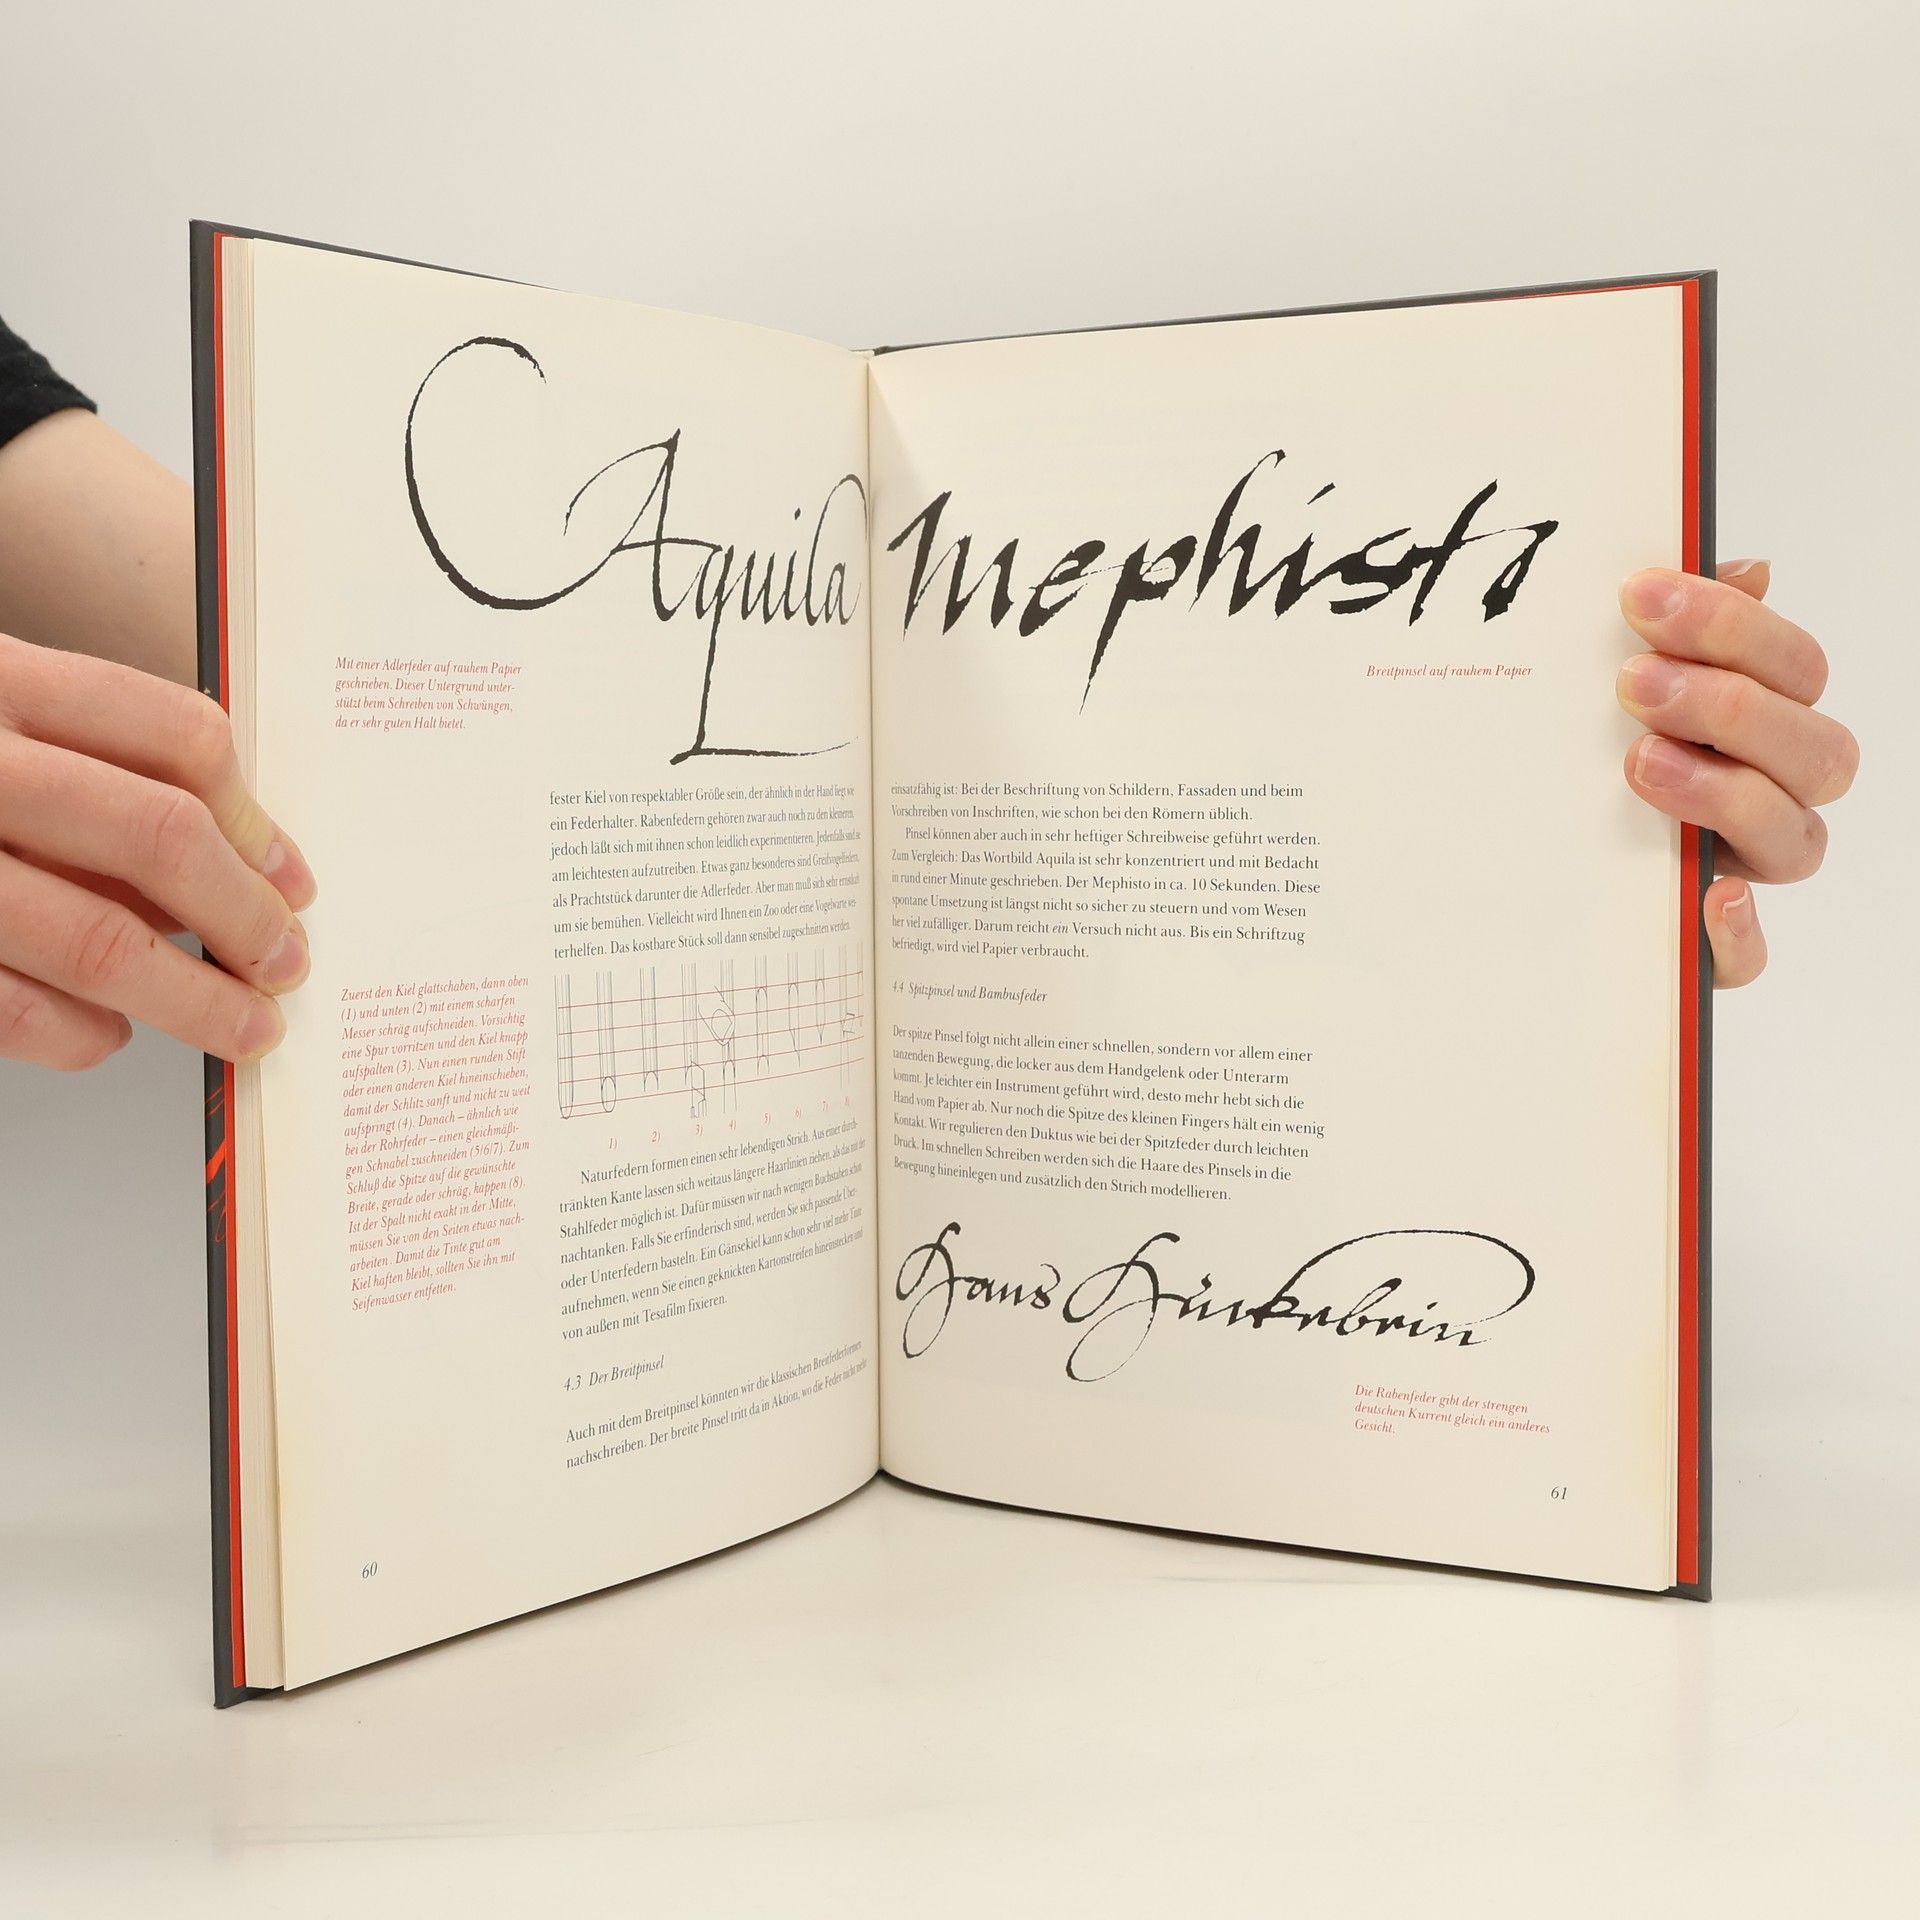 Aquila
Mit einer Adlerfeder auf rauhem Papier
geschrieben. Dieser Untergrund unter-
stützt beim Schreiben von Schwüngen,
da er sehr guten Halt bietet.
fester Kiel von respektabler Größe sein, der ähnlich in der Hand liegt wie
ein Federhalter. Rabenfedern gehören zwar auch noch zu den kleineren,
jedoch läßt sich mit ihnen schon leidlich experimentieren. Jedenfalls sind sie
am leichtesten aufzutreiben. Etwas ganz besonderes sind Greifvogelfedern,
als Prachtstück darunter die Adlerfeder. Aber man muß sich sehr ernsthaft
um sie bemühen. Vielleicht wird Ihnen ein Zoo oder eine Vogelwarte wei-
terhelfen. Das kostbare Stück soll dann sensibel zugeschnitten werden.
Zuerst den Kiel glattschaben, dann oben
(1) und unten (2) mit einem scharfen
Messer schräg aufschneiden. Vorsichtig
eine Spur vorritzen und den Kiel knapp
aufspalten (3). Nun einen runden Stift
oder einen anderen Kiel hineinschieben,
damit der Schlitz sanft und nicht zu weit
aufspringt (4). Danach – ähnlich wie
bei der Rohrfeder – einen gleichmäßi-
gen Schnabel zuschneiden (5/6/7). Zum
Schluß die Spitze auf die gewünschte
Breite, gerade oder schräg, kappen (8).
Ist der Spalt nicht exakt in der Mitte,
müssen Sie von den Seiten etwas nach-
arbeiten. Damit die Tinte gut am
Kiel haften bleibt, sollten Sie ihn mit
Seifenwasser entfetten.
1) 2) 3) 4) 5) 6) 7) 8)
Naturfedern formen einen sehr lebendigen Strich. Aus einer durch-
tränkten Kante lassen sich weitaus längere Haarlinien ziehen, als das mit der
Stahlfeder möglich ist. Dafür müssen wir nach wenigen Buchstaben schon
nachtanken. Falls Sie erfinderisch sind, werden Sie sich passende Über-
oder Unterfedern basteln. Ein Gänsekiel kann schon sehr viel mehr Tinte
aufnehmen, wenn Sie einen geknickten Kartonstreifen hineinstecken und
von außen mit Tesafilm fixieren.
4.3 Der Breitpinsel
Auch mit dem Breitpinsel könnten wir die klassischen Breitfederformen
nachschreiben. Der breite Pinsel tritt da in Aktion, wo die Feder nicht mehr
60
Mephisto
Breitpinsel auf rauhem Papier
einsatzfähig ist: Bei der Beschriftung von Schildern, Fassaden und beim
Vorschreiben von Inschriften, wie schon bei den Römern üblich.
Pinsel können aber auch in sehr heftiger Schreibweise geführt werden.
Zum Vergleich: Das Wortbild Aquila ist sehr konzentriert und mit Bedacht
in rund einer Minute geschrieben. Der Mephisto in ca. 10 Sekunden. Diese
spontane Umsetzung ist längst nicht so sicher zu steuern und vom Wesen
her viel zufälliger. Darum reicht ein Versuch nicht aus. Bis ein Schriftzug
befriedigt, wird viel Papier verbraucht.
4.4 Spitzpinsel und Bambusfeder
Der spitze Pinsel folgt nicht allein einer schnellen, sondern vor allem einer
tanzenden Bewegung, die locker aus dem Handgelenk oder Unterarm
kommt. Je leichter ein Instrument geführt wird, desto mehr hebt sich die
Hand vom Papier ab. Nur noch die Spitze des kleinen Fingers hält ein wenig
Kontakt. Wir regulieren den Duktus wie bei der Spitzfeder durch leichten
Druck. Im schnellen Schreiben werden sich die Haare des Pinsels in die
Bewegung hineinlegen und zusätzlich den Strich modellieren.
Hans Huckebein
Die Rabenfeder gibt der strengen
deutschen Kurrent gleich ein anderes
Gesicht.
61